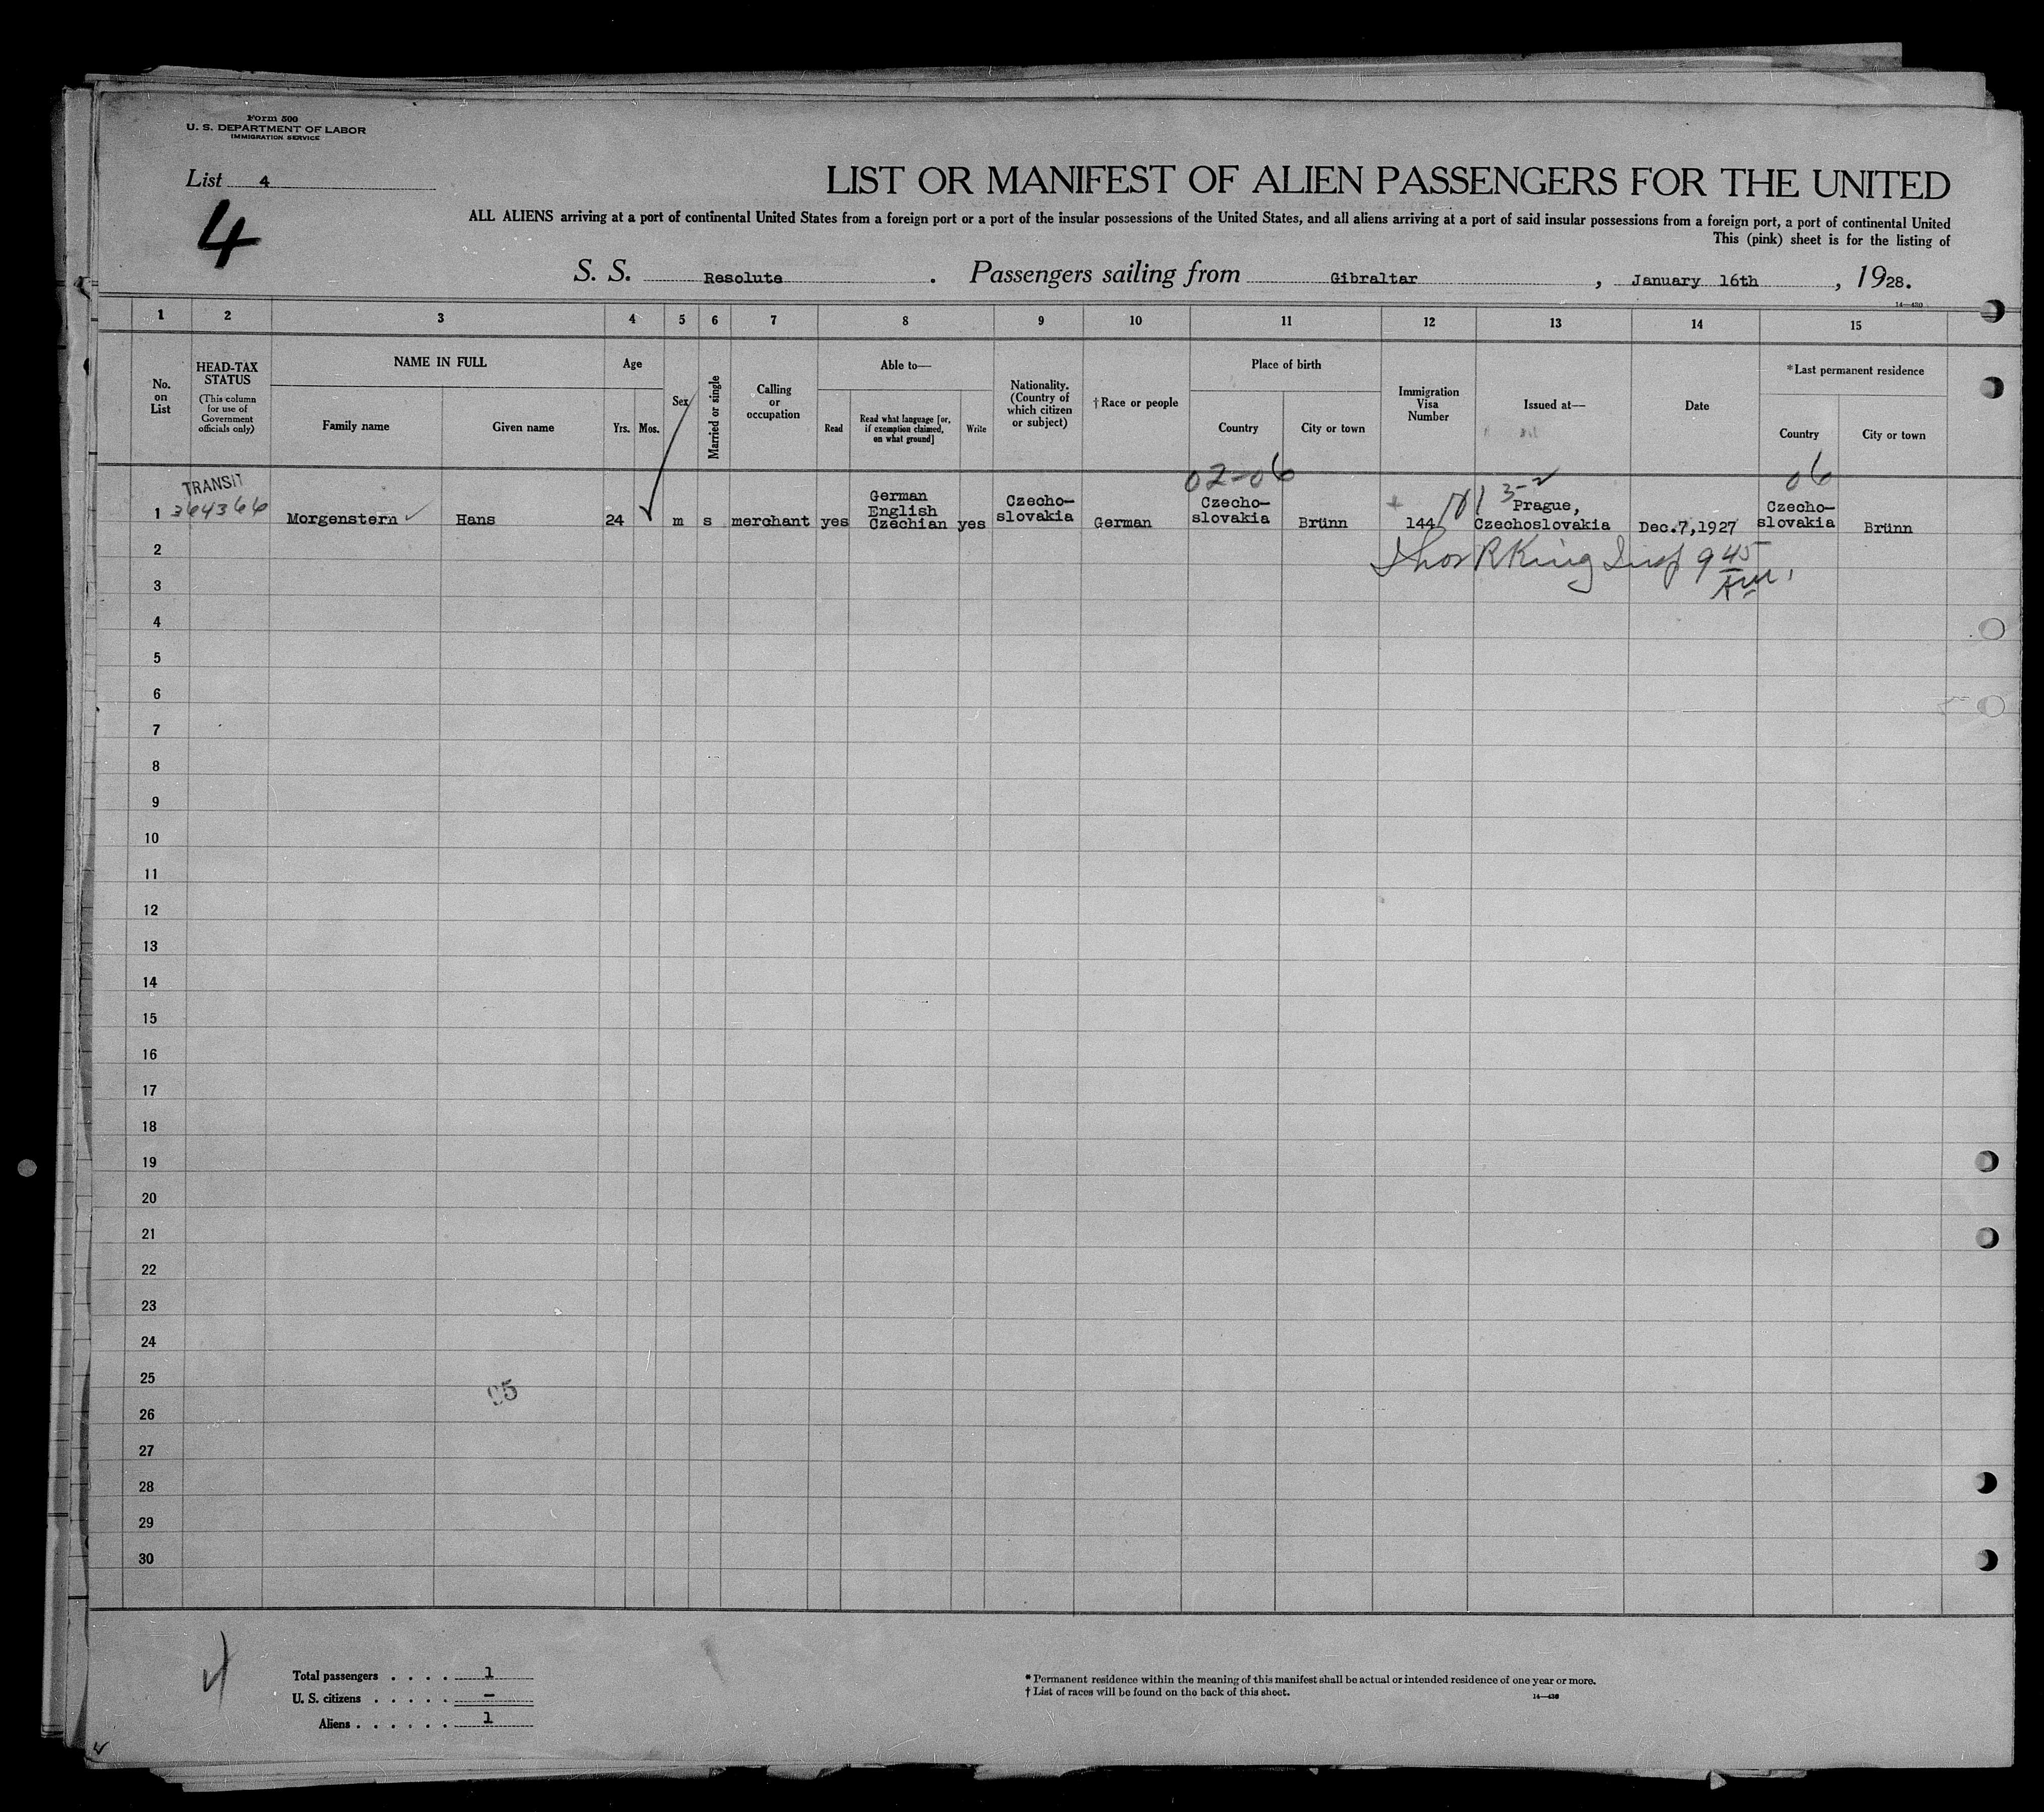 Form 500
U. S. DEPARTMENT OF LABOR
IMMIGRATION SERVICE
List 4
4
LIST OR MANIFEST OF ALIEN PASSENGERS FOR THE UNITED
ALL ALIENS arriving at a port of continental United States from a foreign port or a port of the insular possessions of the United States, and all aliens arriving at a port of said insular possessions from a foreign port, a port of continental United
This (pink) sheet is for the listing of
S. S. Resolute . Passengers sailing from Gibraltar , January 16th , 1928.
14—430
1 2 3 4 5 6 7 8 9 10 11 12 13 14 15
No. on List
HEAD-TAX STATUS
(This column for use of Government officials only)
NAME IN FULL
Family name
Given name
Age
Yrs.
Mos.
Sex
Married or single
Calling or occupation
Able to—
Read
Read what language [or, if exemption claimed, on what ground]
Write
Nationality. (Country of which citizen or subject)
†Race or people
Place of birth
Country
City or town
Immigration Visa Number
Issued at—
Date
*Last permanent residence
Country
City or town
TRANSIT
02-06
3-2
06
1 364366 Morgenstern Hans 24 m s merchant yes German English Czechian yes Czecho-slovakia German Czecho-slovakia Brünn 144 Prague, Czechoslovakia Dec.7,1927 Czecho-slovakia Brünn
Thos R King Insp 9 45 AM.
2
3
4
5
6
7
8
9
10
11
12
13
14
15
16
17
18
19
20
21
22
23
24
25
26
27
28
29
30
95
Total passengers . . . . 1
U. S. citizens . . . . . —
Aliens . . . . . . 1
* Permanent residence within the meaning of this manifest shall be actual or intended residence of one year or more.
† List of races will be found on the back of this sheet.
14—430